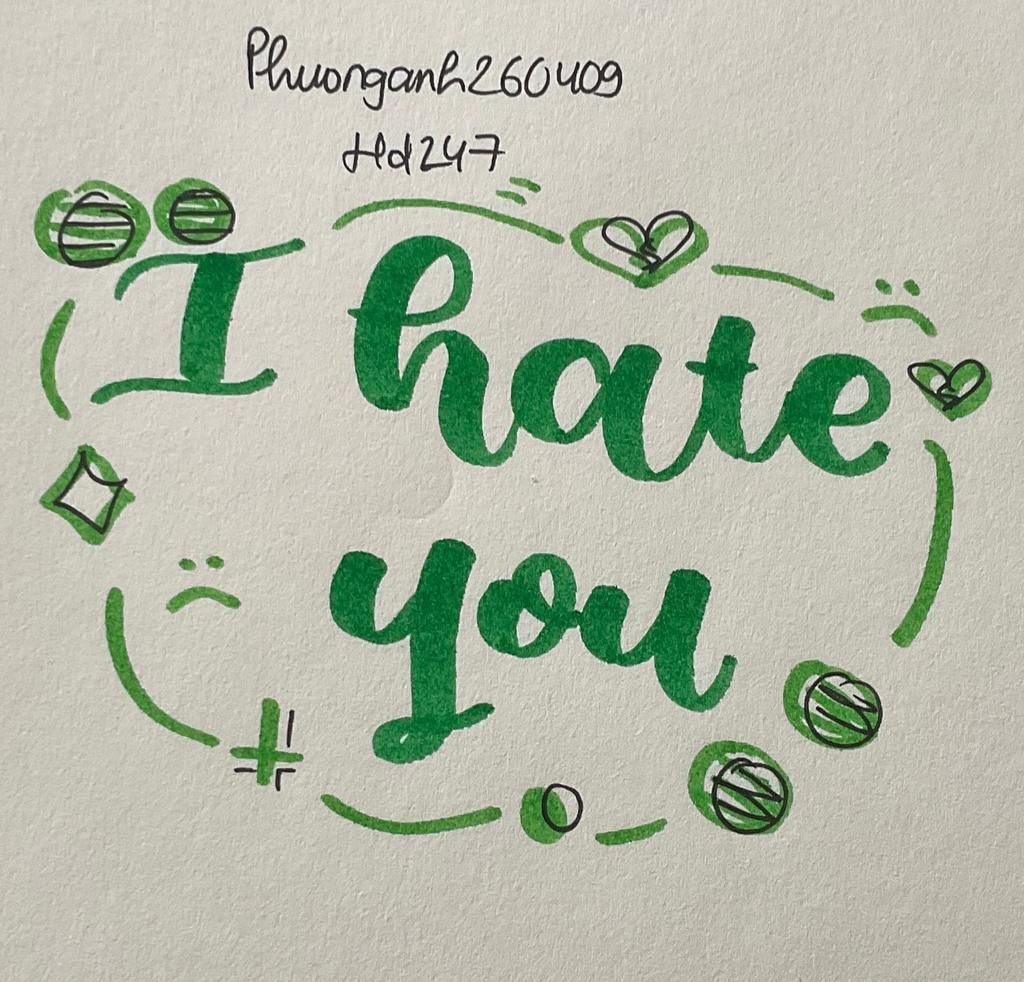 Phuonganh260409
Hd247
I hate
you